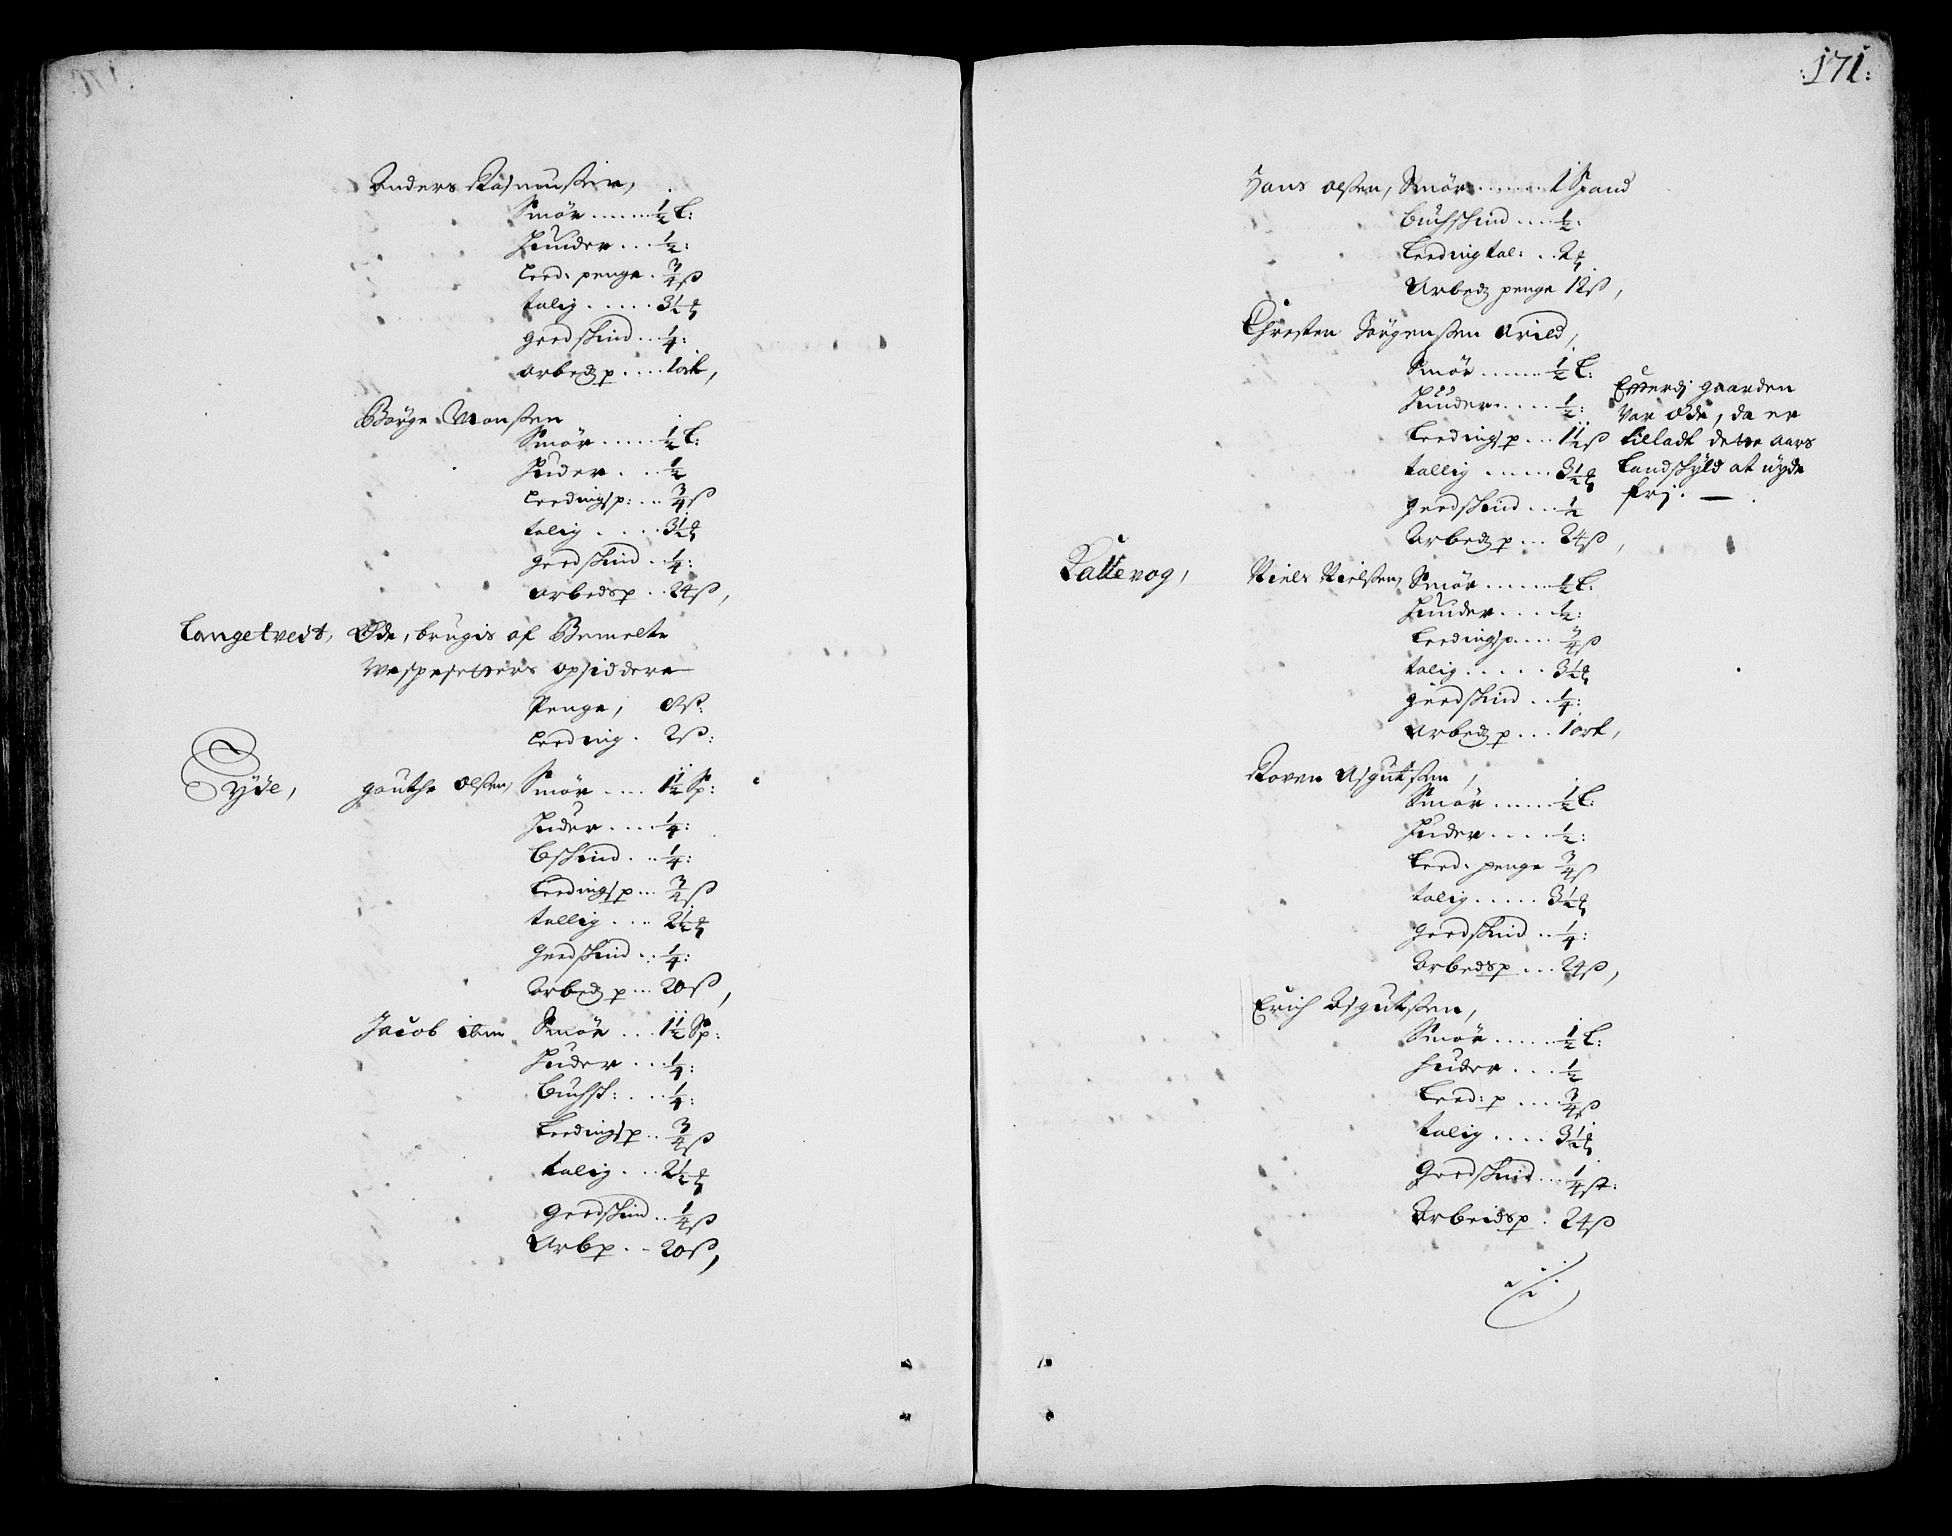 Anders Rasmussen,
Smör ....... ½ L:
Huuder ... ½:
Leed: penge . ¾ ß
talig ..... 3½ ₰
geedskind .. ¼:
Arbedz p .... 1 ort,
Börge Monssen
Smör ..... ½ L:
Huder ... ½
Leedingsp: ... ¾ ß
talig ..... 3½ ₰
geedskind .. ¼:
Arbedsp .. 24 ß,
Langetvedt, Øde, brugis af Bemelte
Wespesetters opsiddere
Penge, 8 ß:
Leeding . 2 ß:
Eyde, gauthe olssen, Smör .... 1½ Sp:
Huder .... ¼:
bskind ... ¼:
Leedingsp ... ¾ ß
tallig .... 2½ ₰
geedskind .. ¼:
Arbedz p ... 20 ß,
Jacob ibm Smör ... 1½ Sp:
Huder .... ¼:
buchsk: ... ¼:
Leedingsp .. ¾ ß
talig ... 2½ ₰
geedskind .. ¼ ß
Arbp .. 20 ß,
:171:
Hans olssen, Smör ....... 1 Spand
buchskind .... ½:
Leedingtal: .. 2 ₰
Arbedz penge 12 ß,
Chresten Jörgenssen Arild,
Smör ...... ½ L:
Huuder .... ½:
Leedingsp ... 1½ ß
tallig ..... 3½ ₰
geedskind ... ½
Arbedz p ... 24 ß,
Efterdj gaarden
var øde, da er
tilladt dette aars
Landskyld at nyde
frj. —
Kattevog, Niels Nielssen, Smör ...... ½ L:
Huuder .... ½:
Leedingsp .... ¾ ß
talig ..... 3½ ₰
geedskind .. ¼:
Arbedz p ... 1 ort,
Roven Asgutssen,
Smör ..... ½ L:
Huder .... ½:
Leed: penge ¾ ß
talig ..... 3½ ₰
geedskind .. ¼:
Arbedsp ... 24 ß,
Erich Asgutssen,
Smör ..... ½ L:
Huder ... ½
Leed: p .... ¾ ß
talig .... 3½ ₰
geedskind ... ¼ st:
Arbeidsp . 24 ß